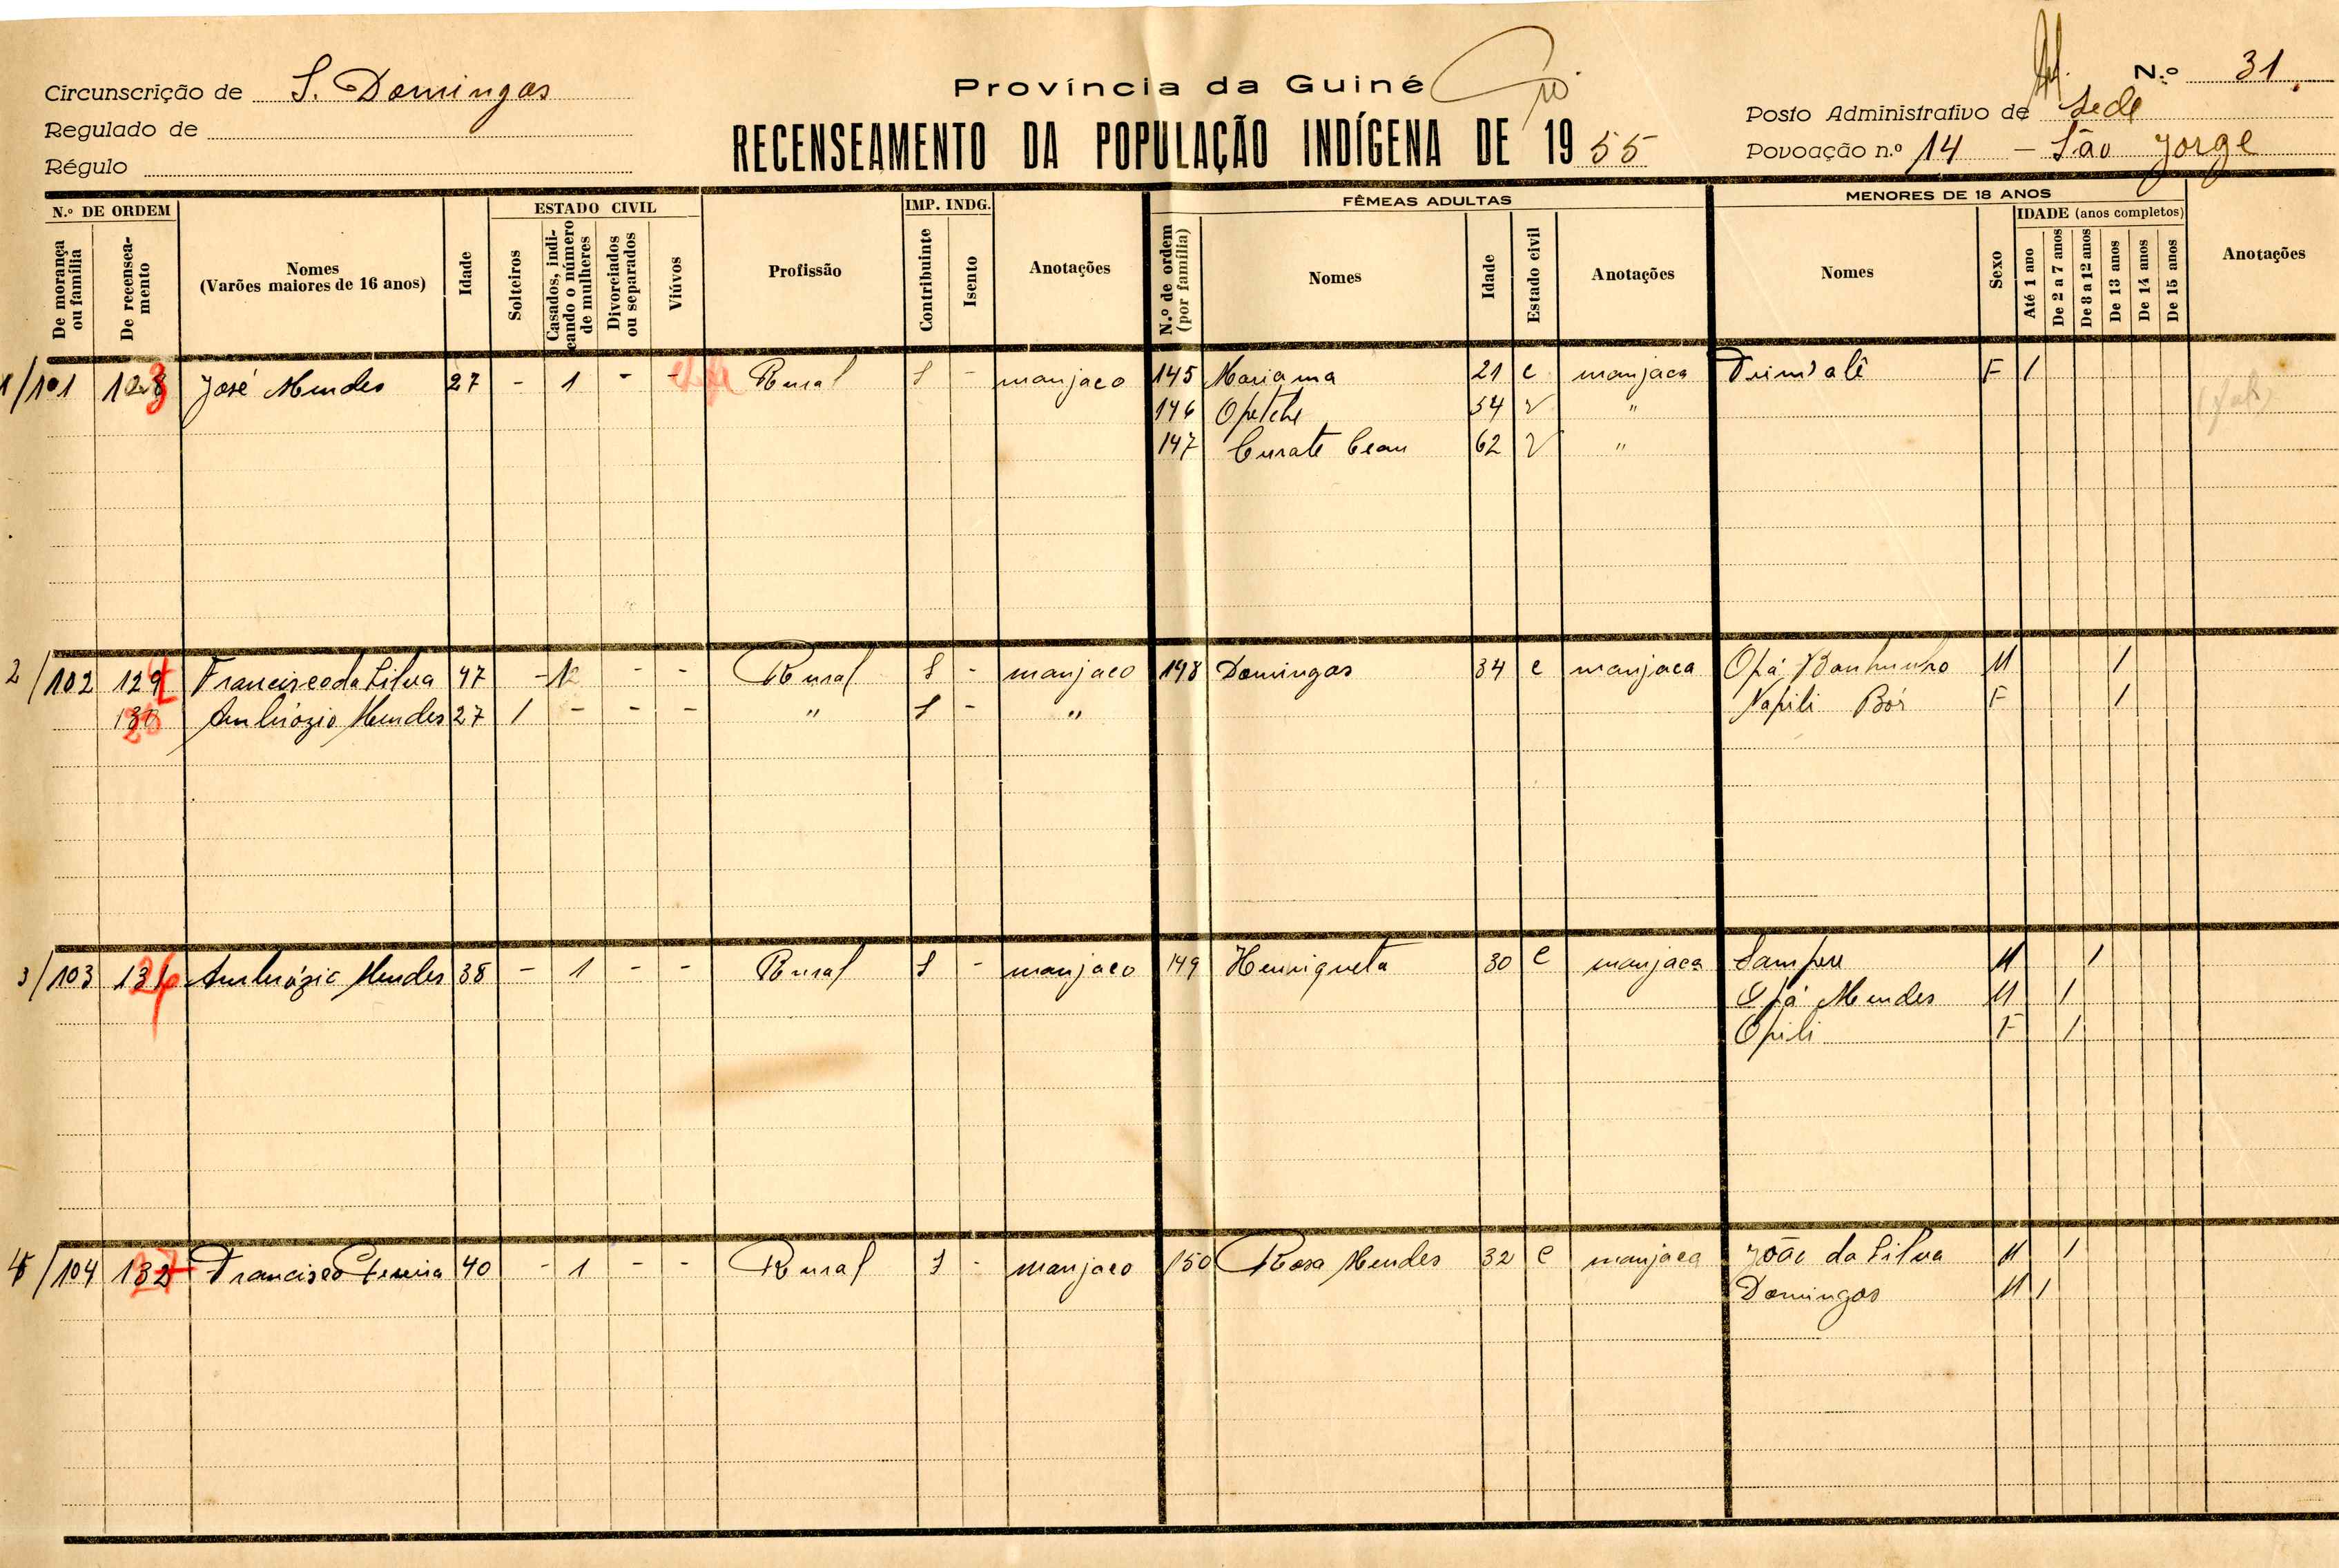 Circunscrição de S. Domingos
Regulado de
Régulo
Província da Guiné
RECENSEAMENTO DA POPULAÇÃO INDÍGENA DE 1955
N.º 31
Posto Administrativo de Sede
Povoação n.º 14 - São Jorge
N.º DE ORDEM
De morança ou família
De recenseamento
Nomes
(Varões maiores de 16 anos)
Idade
ESTADO CIVIL
Solteiros
Casados, indicando o número de mulheres
Divorciados ou separados
Viúvos
Profissão
IMP. INDG.
Contribuinte
Isento
Anotações
FÊMEAS ADULTAS
N.º de ordem (por família)
Nomes
Idade
Estado civil
Anotações
MENORES DE 18 ANOS
Nomes
Sexo
IDADE (anos completos)
Até 1 ano
De 2 a 7 anos
De 8 a 12 anos
De 13 anos
De 14 anos
De 15 anos
Anotações
1/101 128 José Mendes 27 - 1 - - Rural S - manjaco 145 Mariama 21 c manjaca F 1
146 Opetche 54 V "
147 62 V "
2/102 129 Francisco da Silva 47 - 1 - - Rural S - manjaco 148 Domingas 34 c manjaca Opá Banhunho M 1
130 Ambrózio Mendes 27 1 - - - " S - " Napili Bór F 1
3/103 131 Ambrózio Mendes 38 - 1 - - Rural S - manjaco 149 Henriqueta 30 c manjaca Sampere M 1
Opá Mendes M 1
Opili F 1
4/104 132 Francisco Pereira 40 - 1 - - Rural S - manjaco 150 Rosa Mendes 32 c manjaca João da Silva M 1
Domingos M 1